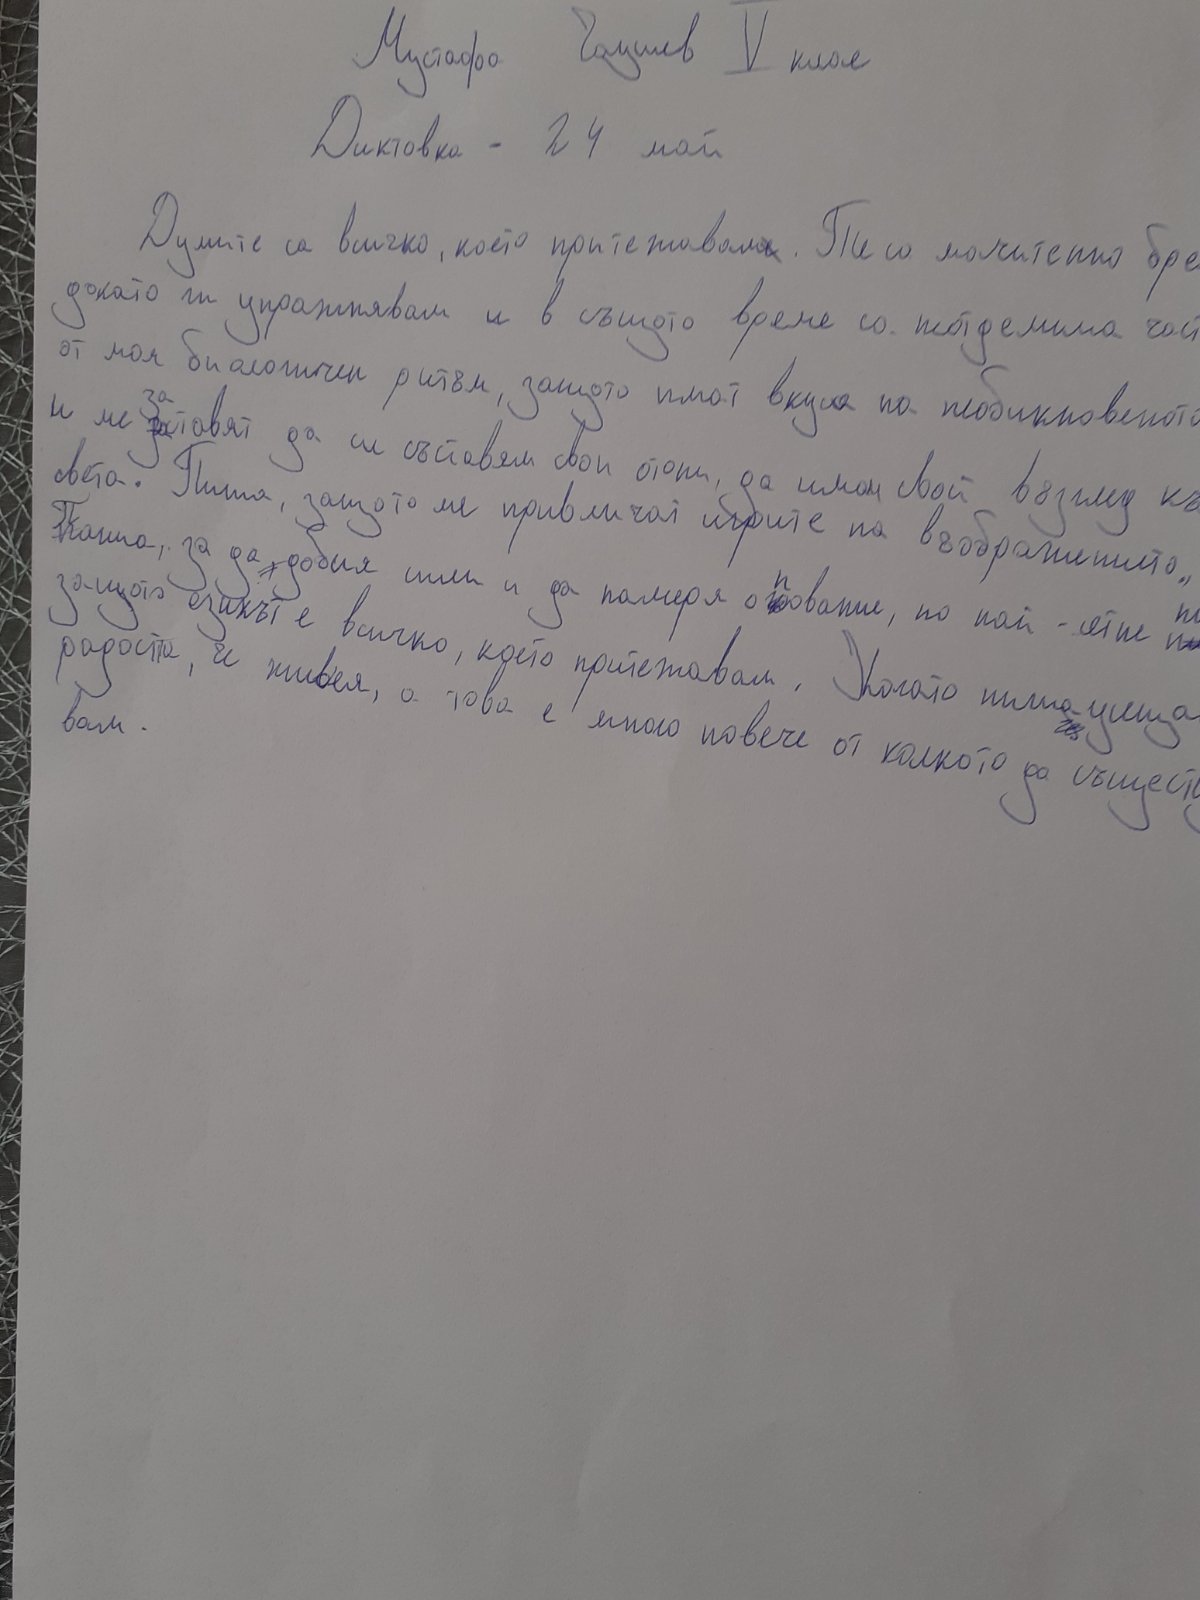 Мустафа Чаушев V клас
Диктовка - 24 май
Думите са всичко, което притежавам. Те са мъчително бре
докато ги упражнявам и в същото време са неотделима част
от моя биологичен ритъм, защото имат вкуса на необикновеното
и ме заставят да си съставям свои, да имам свой възглед къ
света. Пиша, защото ме привличат игрите на въображението,
Пиша, за да добия сили и да намеря основание, но най-
защото езикът е всичко, което притежавам. Когато пиша усеща
радостта, че живея, а това е много повече от колкото да съществу
вам.